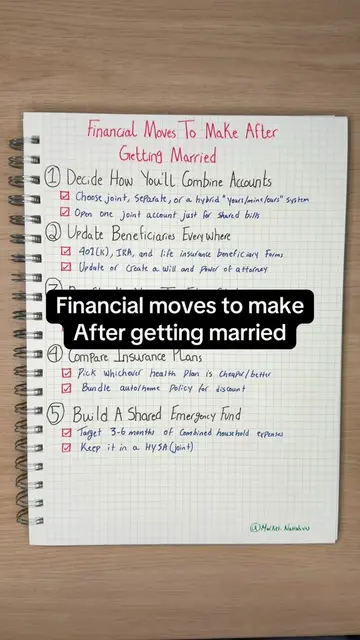 Financial Moves To Make After
Getting Married
① Decide How You'll Combine Accounts
☑ Choose joint, separate, or a hybrid "yours/mine/ours" system
☑ Open one joint account just for shared bills
② Update Beneficiaries Everywhere
☑ 401(k), IRA, and life insurance beneficiary forms
☑ Update or create a will and power of attorney
Financial moves to make
After getting married
④ Compare Insurance Plans
☑ Pick whichever health plan is cheaper/better
☑ Bundle auto/home policy for discount
⑤ Build A Shared Emergency Fund
☑ Target 3-6 months of combined household expenses
☑ Keep it in a HYSA (joint)